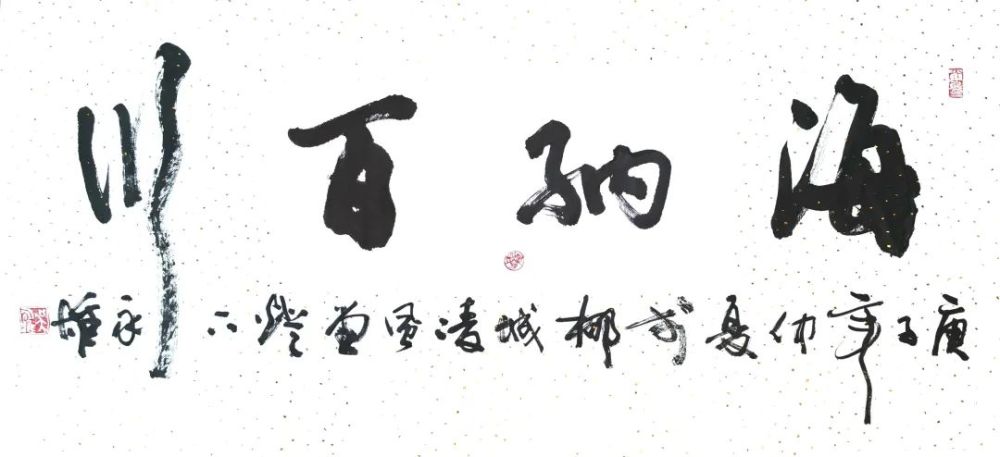 海纳百川
庚子年仲夏书于柳城凌风堂灯下永雄